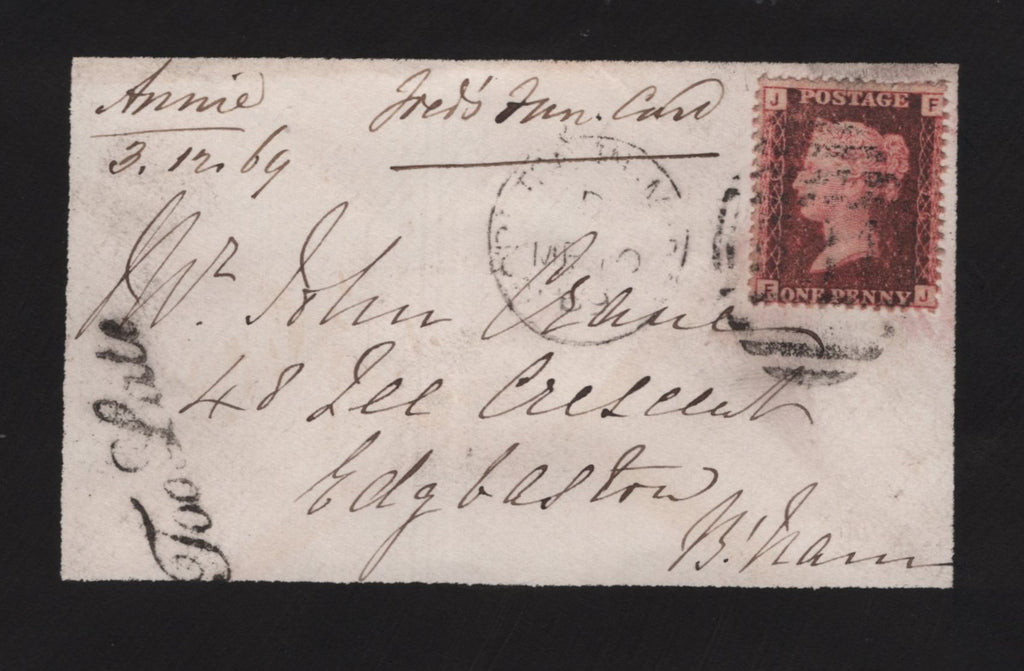 Annie
Fred's Fun. Card
3. 12. 69
J POSTAGE F
F ONE PENNY J
Mr. John Crane
48 Lee Crescent
Edgbaston
B'ham
Too Late